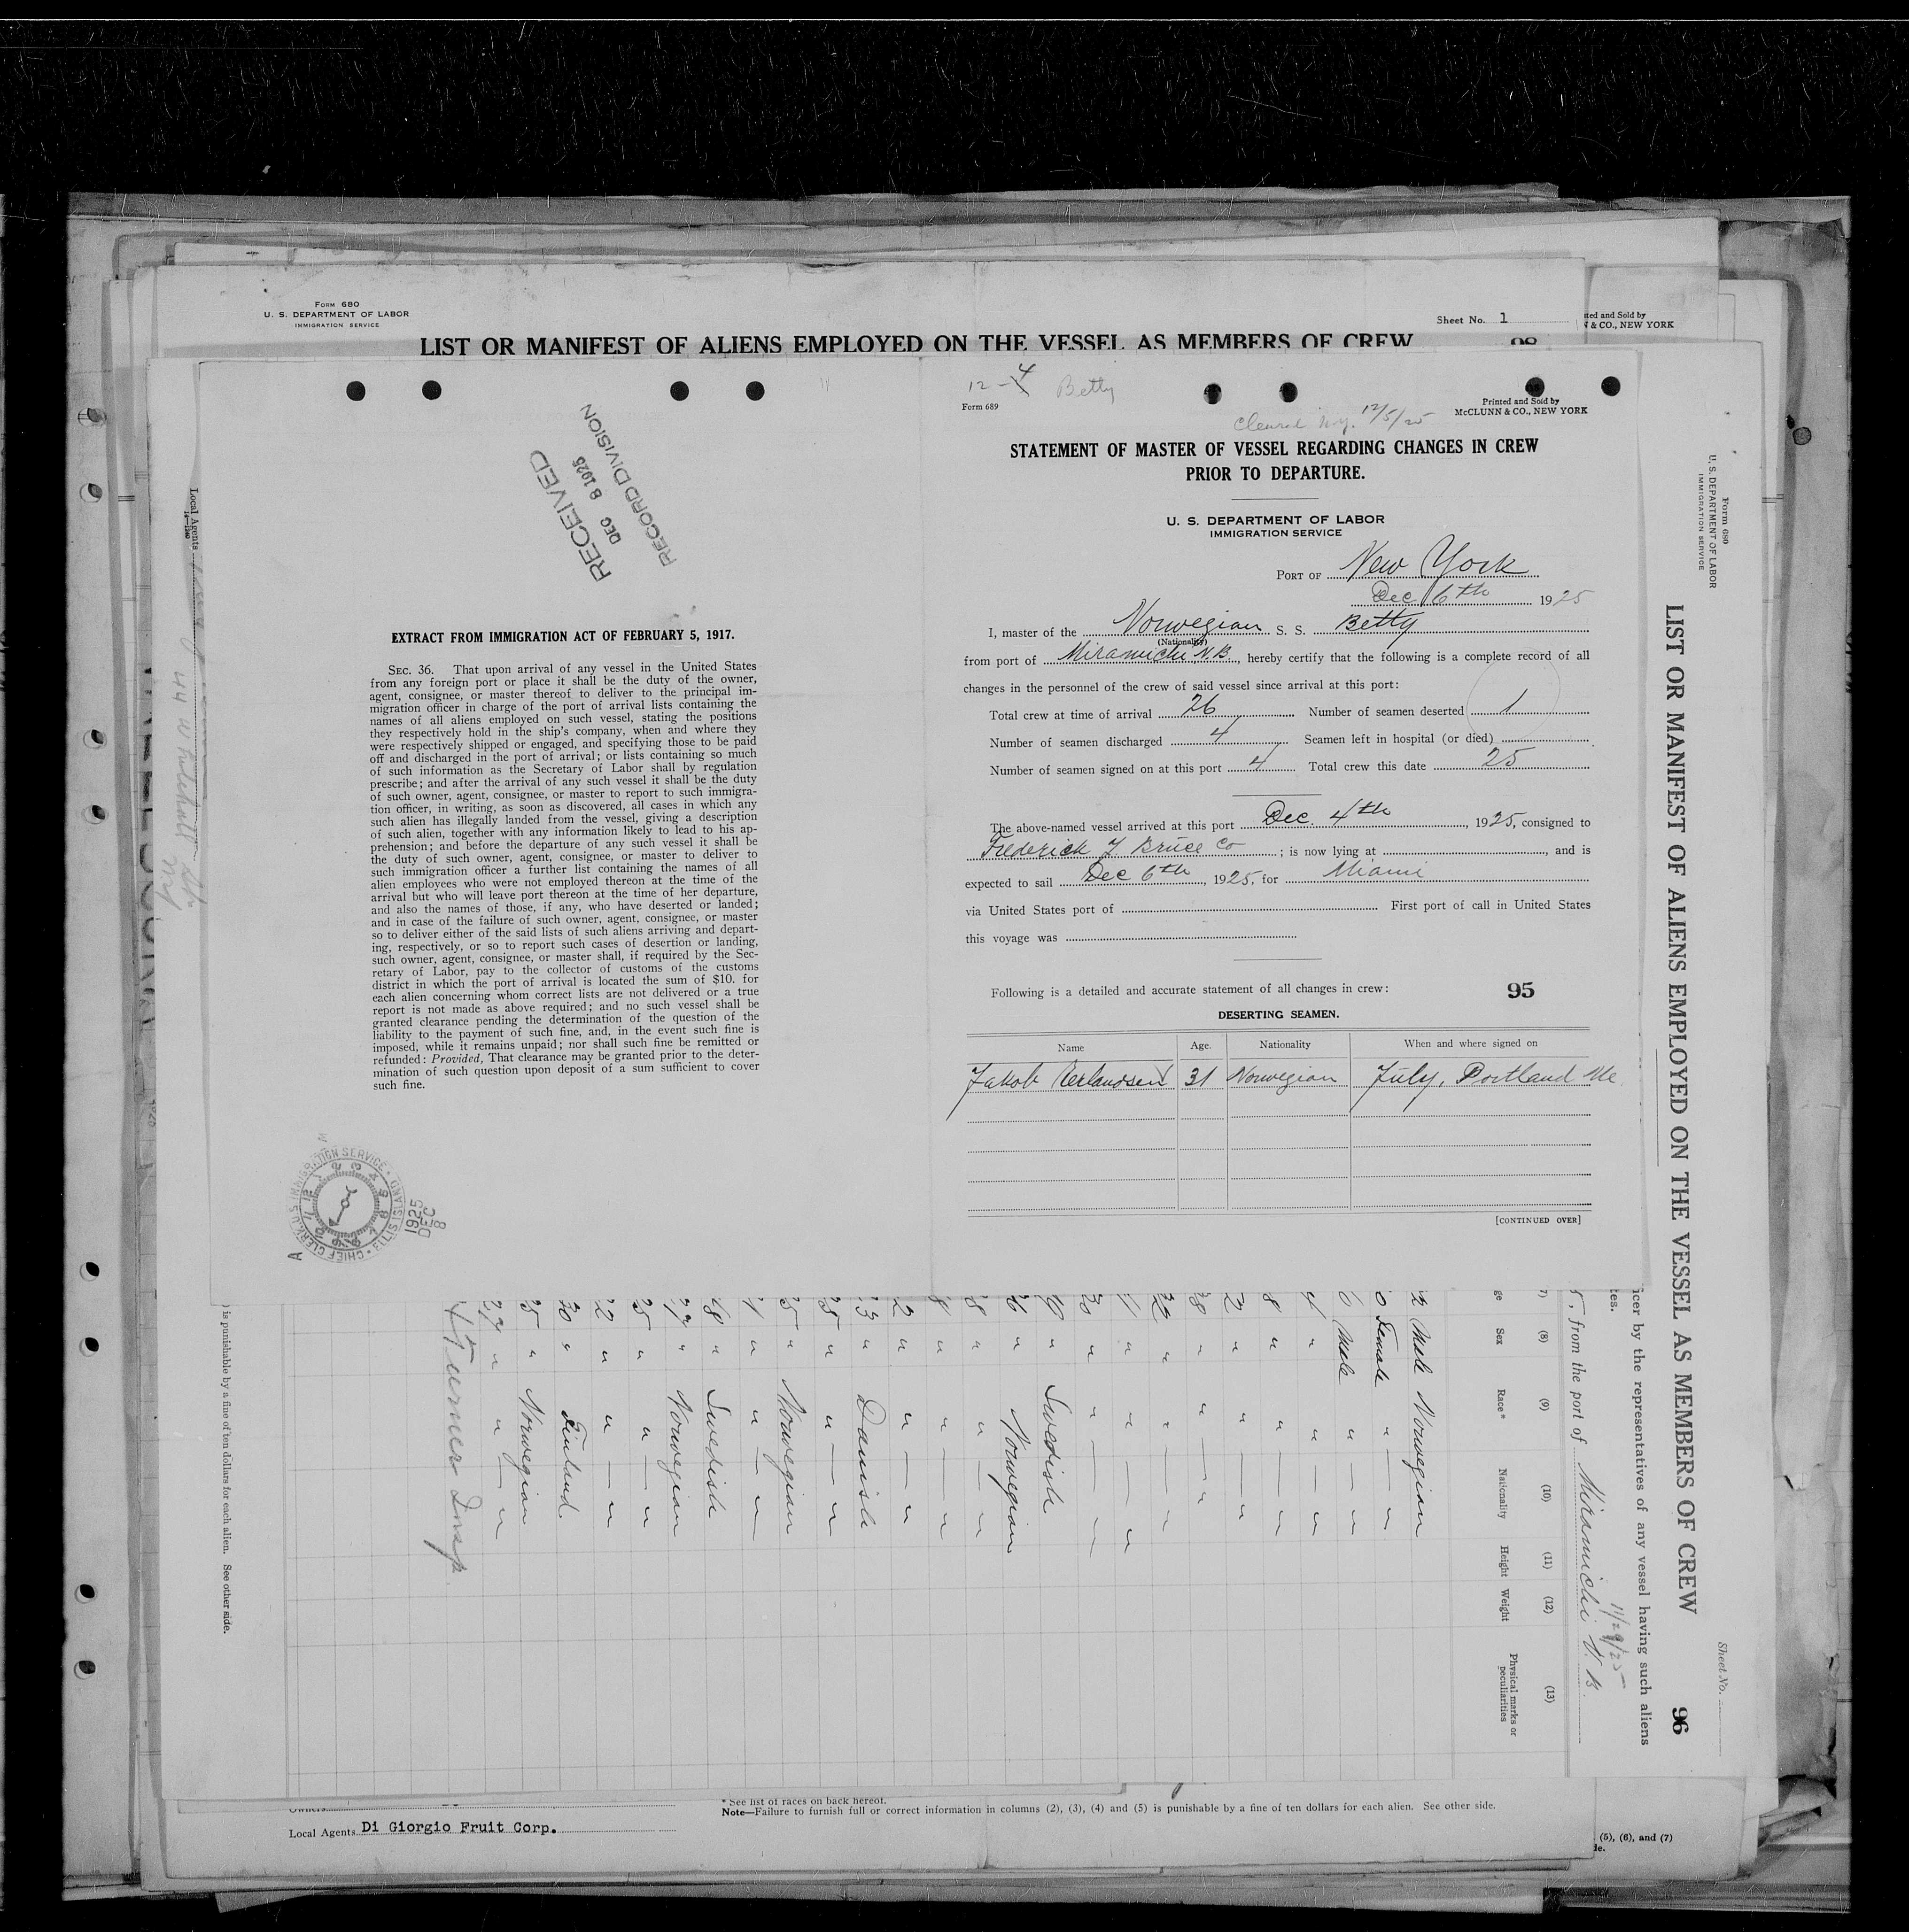 Form 680
U. S. DEPARTMENT OF LABOR
IMMIGRATION SERVICE
Sheet No. 1
LIST OR MANIFEST OF ALIENS EMPLOYED ON THE VESSEL AS MEMBERS OF CREW
& CO., NEW YORK
RECEIVED
DEC 8 1925
RECORD DIVISION
EXTRACT FROM IMMIGRATION ACT OF FEBRUARY 5, 1917.
SEC. 36. That upon arrival of any vessel in the United States
from any foreign port or place it shall be the duty of the owner,
agent, consignee, or master thereof to deliver to the principal im-
migration officer in charge of the port of arrival lists containing the
names of all aliens employed on such vessel, stating the positions
they respectively hold in the ship's company, when and where they
were respectively shipped or engaged, and specifying those to be paid
off and discharged in the port of arrival; or lists containing so much
of such information as the Secretary of Labor shall by regulation
prescribe; and after the arrival of any such vessel it shall be the duty
of such owner, agent, consignee, or master to report to such immigra-
tion officer, in writing, as soon as discovered, all cases in which any
such alien has illegally landed from the vessel, giving a description
of such alien, together with any information likely to lead to his ap-
prehension; and before the departure of any such vessel it shall be
the duty of such owner, agent, consignee, or master to deliver to
such immigration officer a further list containing the names of all
alien employees who were not employed thereon at the time of the
arrival but who will leave port thereon at the time of her departure,
and also the names of those, if any, who have deserted or landed;
and in case of the failure of such owner, agent, consignee, or master
so to deliver either of the said lists of such aliens arriving and depart-
ing, respectively, or so to report such cases of desertion or landing,
such owner, agent, consignee, or master shall, if required by the Sec-
retary of Labor, pay to the collector of customs of the customs
district in which the port of arrival is located the sum of $10. for
each alien concerning whom correct lists are not delivered or a true
report is not made as above required; and no such vessel shall be
granted clearance pending the determination of the question of the
liability to the payment of such fine, and, in the event such fine is
imposed, while it remains unpaid; nor shall such fine be remitted or
refunded: Provided, That clearance may be granted prior to the deter-
mination of such question upon deposit of a sum sufficient to cover
such fine.
CHIEF CLERK, U.S. IMMIGRATION SERVICE · ELLIS ISLAND
1925
DEC
8
12-4 Betty
Form 689
Printed and Sold by
McCLUNN & CO., NEW YORK
Cleared N.Y. 12/5/25
STATEMENT OF MASTER OF VESSEL REGARDING CHANGES IN CREW
PRIOR TO DEPARTURE.
U. S. DEPARTMENT OF LABOR
IMMIGRATION SERVICE
PORT OF New York
Dec 6th 1925
I, master of the Norwegian S. S. Betty
(Nationality)
from port of Miramichi N.B., hereby certify that the following is a complete record of all
changes in the personnel of the crew of said vessel since arrival at this port:
Total crew at time of arrival 26 Number of seamen deserted 1
Number of seamen discharged 4 Seamen left in hospital (or died)
Number of seamen signed on at this port 4 Total crew this date 25
The above-named vessel arrived at this port Dec. 4th, 1925, consigned to
Frederick J Bruce Co; is now lying at, and is
expected to sail Dec 6th, 1925, for Miami
via United States port of First port of call in United States
this voyage was
Following is a detailed and accurate statement of all changes in crew: 95
DESERTING SEAMEN.
Name Age. Nationality When and where signed on
Jakob Eerlandsen 31 Norwegian July, Portland Me
[CONTINUED OVER]
Form 680
U. S. DEPARTMENT OF LABOR
IMMIGRATION SERVICE
Sheet No.
LIST OR MANIFEST OF ALIENS EMPLOYED ON THE VESSEL AS MEMBERS OF CREW 96
icer by the representatives of any vessel having such aliens
11/29/25
, from the port of Miramichi N.B.
(8) (9) (10) (11) (12) (13)
Sex Race* Nationality Height Weight Physical marks or peculiarities
Male Norwegian
Female " — "
Male " — "
" " — "
" " — "
" " — "
" " — "
" " — "
" " — "
" " — "
" Swedish
" Norwegian
" " — "
" " — "
" " — "
" Danish
" " — "
" Norwegian
" " — "
" Swedish
" Norwegian
" " — "
" " — "
" Finland
" Norwegian
" " — "
Turner Insp.
is punishable by a fine of ten dollars for each alien. See other side.
Local Agents
44 Whitehall St.
NY
Owners
* See list of races on back hereof.
Note—Failure to furnish full or correct information in columns (2), (3), (4) and (5) is punishable by a fine of ten dollars for each alien. See other side.
Local Agents Di Giorgio Fruit Corp.
(5), (6), and (7)